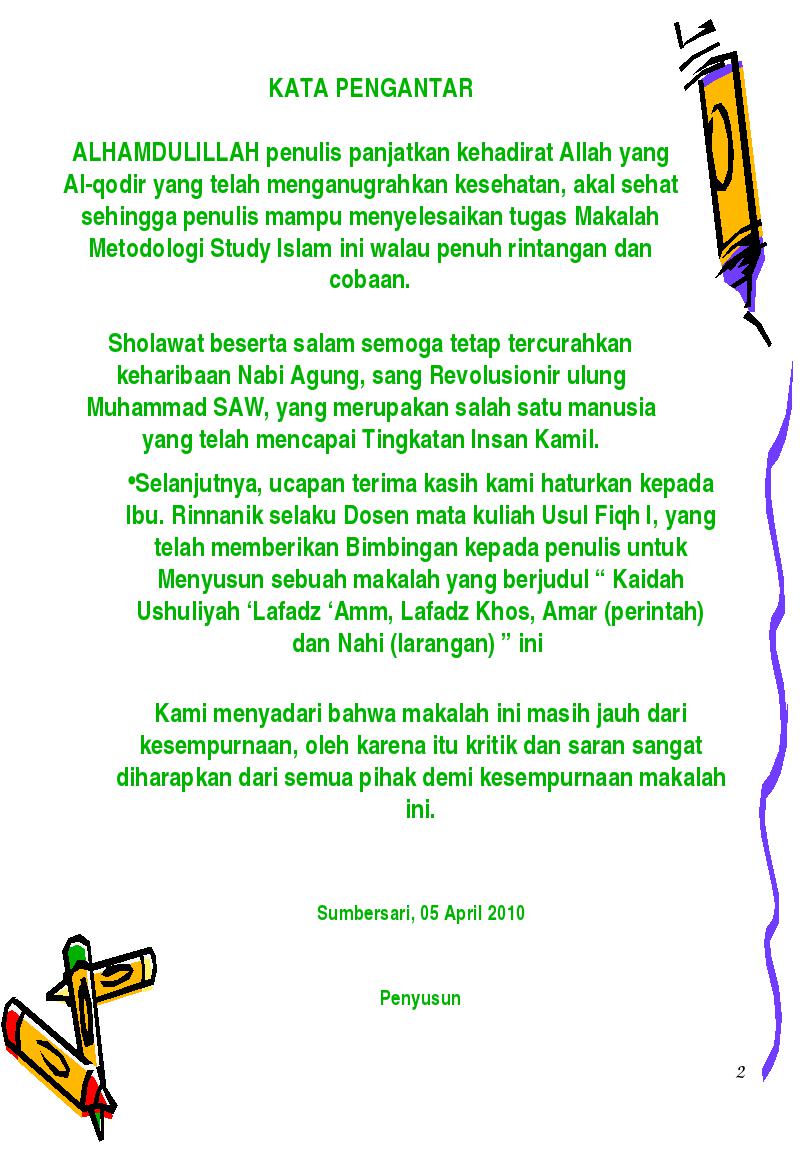 KATA PENGANTAR
ALHAMDULILLAH penulis panjatkan kehadirat Allah yang
Al-qodir yang telah menganugrahkan kesehatan, akal sehat
sehingga penulis mampu menyelesaikan tugas Makalah
Metodologi Study Islam ini walau penuh rintangan dan
cobaan.
Sholawat beserta salam semoga tetap tercurahkan
keharibaan Nabi Agung, sang Revolusionir ulung
Muhammad SAW, yang merupakan salah satu manusia
yang telah mencapai Tingkatan Insan Kamil.
•Selanjutnya, ucapan terima kasih kami haturkan kepada
Ibu. Rinnanik selaku Dosen mata kuliah Usul Fiqh I, yang
telah memberikan Bimbingan kepada penulis untuk
Menyusun sebuah makalah yang berjudul “ Kaidah
Ushuliyah ‘Lafadz ‘Amm, Lafadz Khos, Amar (perintah)
dan Nahi (larangan) ” ini
Kami menyadari bahwa makalah ini masih jauh dari
kesempurnaan, oleh karena itu kritik dan saran sangat
diharapkan dari semua pihak demi kesempurnaan makalah
ini.
Sumbersari, 05 April 2010
Penyusun
2